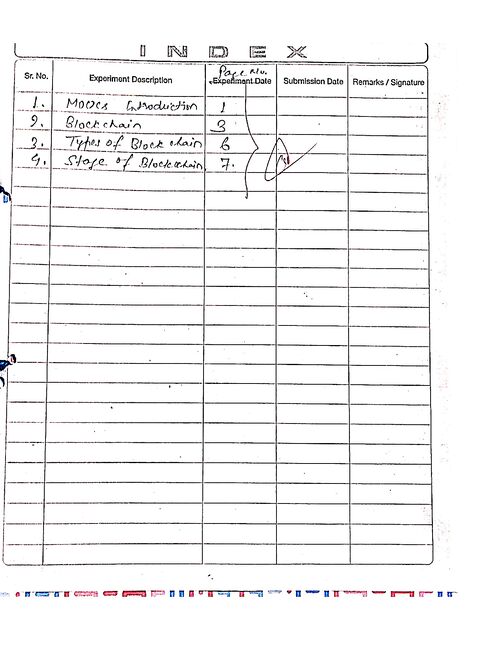 INDEX
Page No.
Sr. No. Experiment Description Experiment Date Submission Date Remarks / Signature
1. MOOCs Introduction 1
2. Blockchain 3
3. Types of Blockchain 6
4. Stage of Blockchain 7.